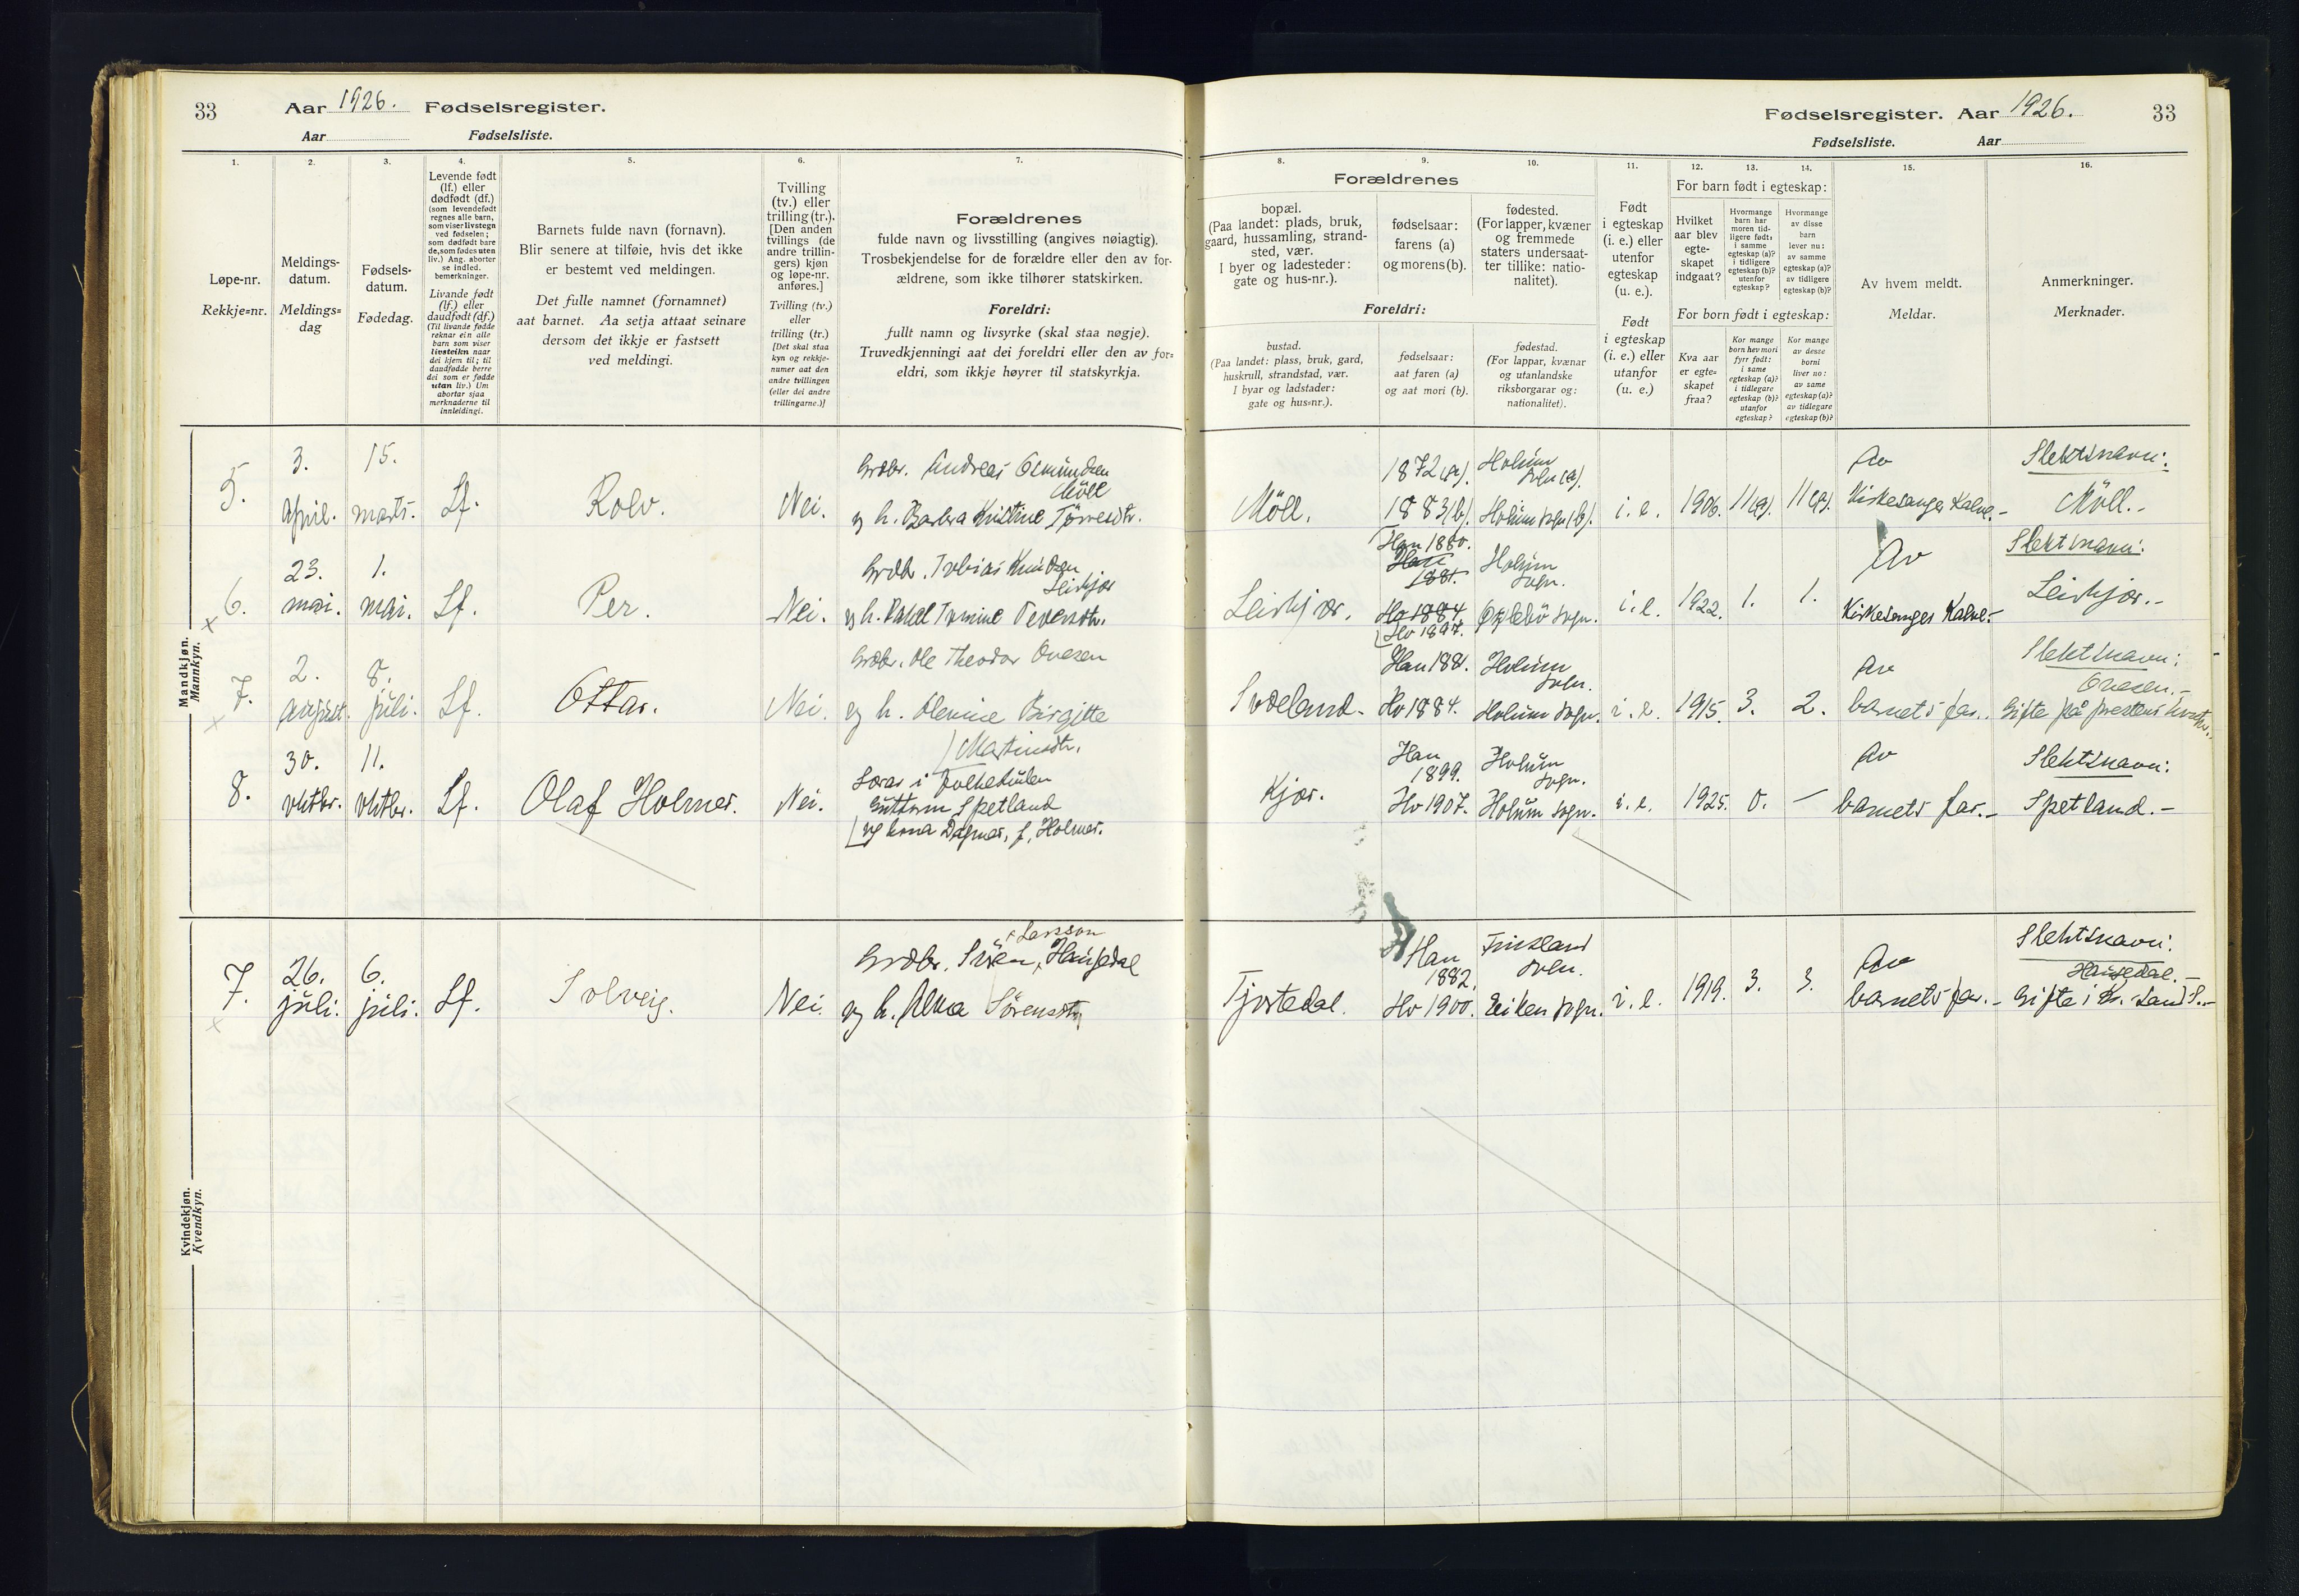 33 Aar 1926. Fødselsregister.
Aar Fødselsliste.
1. 2. 3. 4. 5. 6. 7.
Løpe-nr.
Rekkje=nr.
Meldings-
datum.
Meldings=
dag
Fødsels-
datum.
Fødedag.
Levende født
(lf.) eller
dødfødt (df.)
(som levendefødt
regnes alle barn,
som viser livstegn
ved fødselen;
som dødfødt bare
de, som fødes uten
liv.) Ang. aborter
se indled.
bemerkninger.
Livande født
(lf.) eller
daudfødt (df.)
(Til livande fødde
reknar ein alle
barn som viser
livsteikn naar
dei kjem til; til
daudfødde berre
dei som er fødde
utan liv.) Um
abortar sjaa
merknaderne til
innleidingi.
Barnets fulde navn (fornavn).
Blir senere at tilføie, hvis det ikke
er bestemt ved meldingen.
Det fulle namnet (fornamnet)
aat barnet. Aa setja attaat seinare
dersom det ikkje er fastsett
ved meldingi.
Tvilling
(tv.) eller
trilling (tr.).
[Den anden
tvillings (de
andre trillin-
gers) kjøn
og løpe-nr.
anføres.]
Tvilling (tv.)
eller
trilling (tr.)
[Det skal staa
kyn og rekkje-
numer aat den
andre tvillingen
(eller dei andre
trillingarne.)]
Forældrenes
fulde navn og livsstilling (angives nøiagtig).
Trosbekjendelse for de forældre eller den av for-
ældrene, som ikke tilhører statskirken.
Foreldri:
fullt namn og livsyrke (skal staa nøgje).
Truvedkjenningi aat dei foreldri eller den av for=
eldri, som ikkje høyrer til statskyrkja.
Mandkjøn.
Mannkyn.
5. 3. april. 15. marts. Lf. Rolv. Nei.
Grdbr. Andreas Osmundsen
Möll
og h. Barbra Kristine Törresdtr.
6. 23. mai. 1. mai. Lf. Per. Nei.
Grdbr. Tobias Knudsen
Leirkjær
og h. Rakel Tomine Pedersdtr.
7. 2. august. 8. juli. Lf. Ottar. Nei.
Grdbr. Ole Theodor Ovesen
og h. Olemine Birgitte
Martinsdtr.
8. 30. oktbr. 11. oktbr. Lf. Olaf Holmer. Nei.
Lærer i folkeskulen
Guttorm Spetland
og kona Dagmar, f. Holmer.
Kvindekjøn.
Kvendkyn.
7. 26. juli. 6. juli. Lf. Solveig. Nei.
x Larsson
Grdbr. Sven x Haugedal
og h. Alva Sörensdtr.
Fødselsregister. Aar 1926. 33
Fødselsliste. Aar
8. 9. 10. 11. 12. 13. 14. 15. 16.
Forældrenes
bopæl.
(Paa landet: plads, bruk,
gaard, hussamling, strand-
sted, vær.
I byer og ladesteder:
gate og hus-nr.).
fødselsaar:
farens (a)
og morens (b).
fødested.
(For lapper, kvæner
og fremmede
staters undersaat-
ter tillike: natio-
nalitet).
Foreldri:
bustad.
(Paa landet: plass, bruk, gard,
huskrull, strandstad, vær.
I byar og ladstader:
gate og hus=nr.).
fødselsaar:
aat faren (a)
og aat mori (b).
fødestad.
(For lappar, kvænar
og utanlandske
riksborgarar og:
nationalitet).
Født
i egteskap
(i. e.) eller
utenfor
egteskap
(u. e.).
Født
i egteskap
(i. e.) eller
utanfor
(u. e.)
For barn født i egteskap:
Hvilket
aar blev
egte-
skapet
indgaat?
Hvormange
barn har
moren tid-
ligere født:
i samme
egteskap (a)?
i tidligere
egteskap (b)?
utenfor
egteskap?
Hvormange
av disse
barn
lever nu:
av samme
egteskap (a)?
av tidligere
egteskap (b)?
For born født i egteskap:
Kva aar
er egte=
skapet
fraa?
Kor mange
born hev mori
fyrr født:
i same
egteskap (a)?
i tidlegare
egteskap (b)?
utanfor
egteskap?
Kor mange
av desse
borni
liver no:
av same
egteskap (a)?
av tidlegare
egteskap (b)?
Av hvem meldt.
Meldar.
Anmerkninger.
Merknader.
Möll. 1872(a). 1883(b). Holum sogn (a). Holum sogn (b). i. e. 1906. 11(a). 11(a). Av Kirkesanger Kalve.- Slektsnavn: Möll.-
Leirkjær. Han 1880. Han 1881. Ho 1884 Ho 1897. Holum sogn. Öslebö sogn. i. e. 1922. 1. 1. Av Kirkesanger Kalve.- Slektsnavn: Leirkjær.-
Svæland. Han 188. Ho 1884. Holum sogn. Holum sogn. i. e. 1915. 3. 2. Av barnets far. Slektsnavn: Ovesen.- Gifte på prestens kontor.
Kjær. Han 1899. Ho 1907. Holum sogn. Holum sogn. i. e. 1925. 0. - Av barnets far.- Slektsnavn: Spetland.-
Tjostedal. Han 1882. Ho 1900. Finsland sogn. Eiken sogn. i. e. 1919. 3. 3. Av barnets far.- Slektsnavn: Haugedal.- Gifte i Kr. Sand S.-